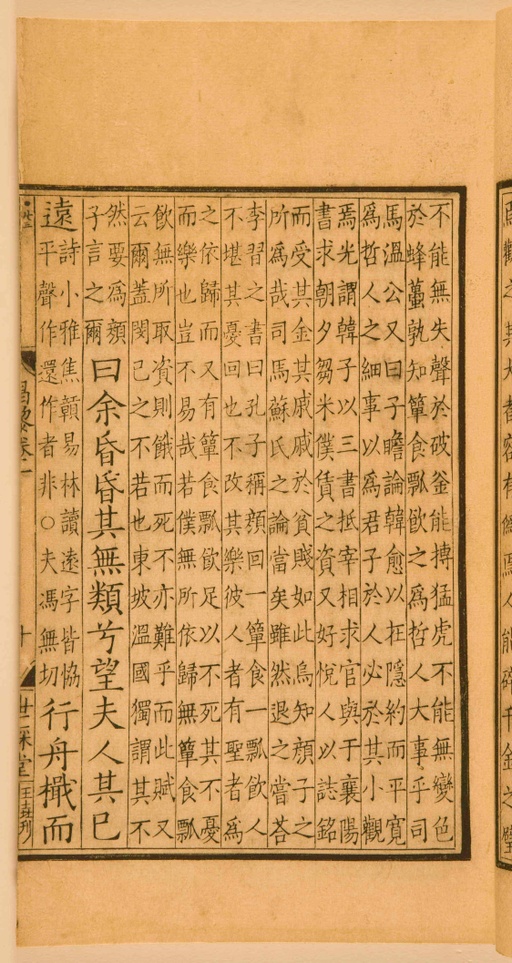 不能無失聲於破釜能搏猛虎不能無變色
於蜂蠆孰知簞食瓢飲之爲哲人大事乎司
馬溫公又曰子瞻論韓愈以在隱約而平寬
爲哲人之細事以爲君子於人必於其小觀
焉光謂韓子以三書抵宰相求官與于襄陽
書求朝夕芻米僕賃之資又好悅人以誌銘
而受其金其戚戚於貧賤如此烏知顏子之
所爲哉司馬蘇氏之論當矣雖然退之當荅
李習之書曰孔子稱顏回一簞食一瓢飲人
不堪其憂回也不改其樂彼人者有聖者爲
之依歸而又有簞食瓢飲足以不死其不憂
而樂也豈不易哉若僕無所依歸無簞食瓢
飲無所取資則餓而死不亦難乎而此賦又
云爾蓋閔己之不若也東坡溫國獨謂其不
然要爲顏
子言之爾
曰余昏昏其無類兮望夫人其已
遠
詩小雅焦贑易林讀遠字皆恊
平聲作還作者非○夫馮無切
行舟檝而
昌黎卷一
十
世綵堂